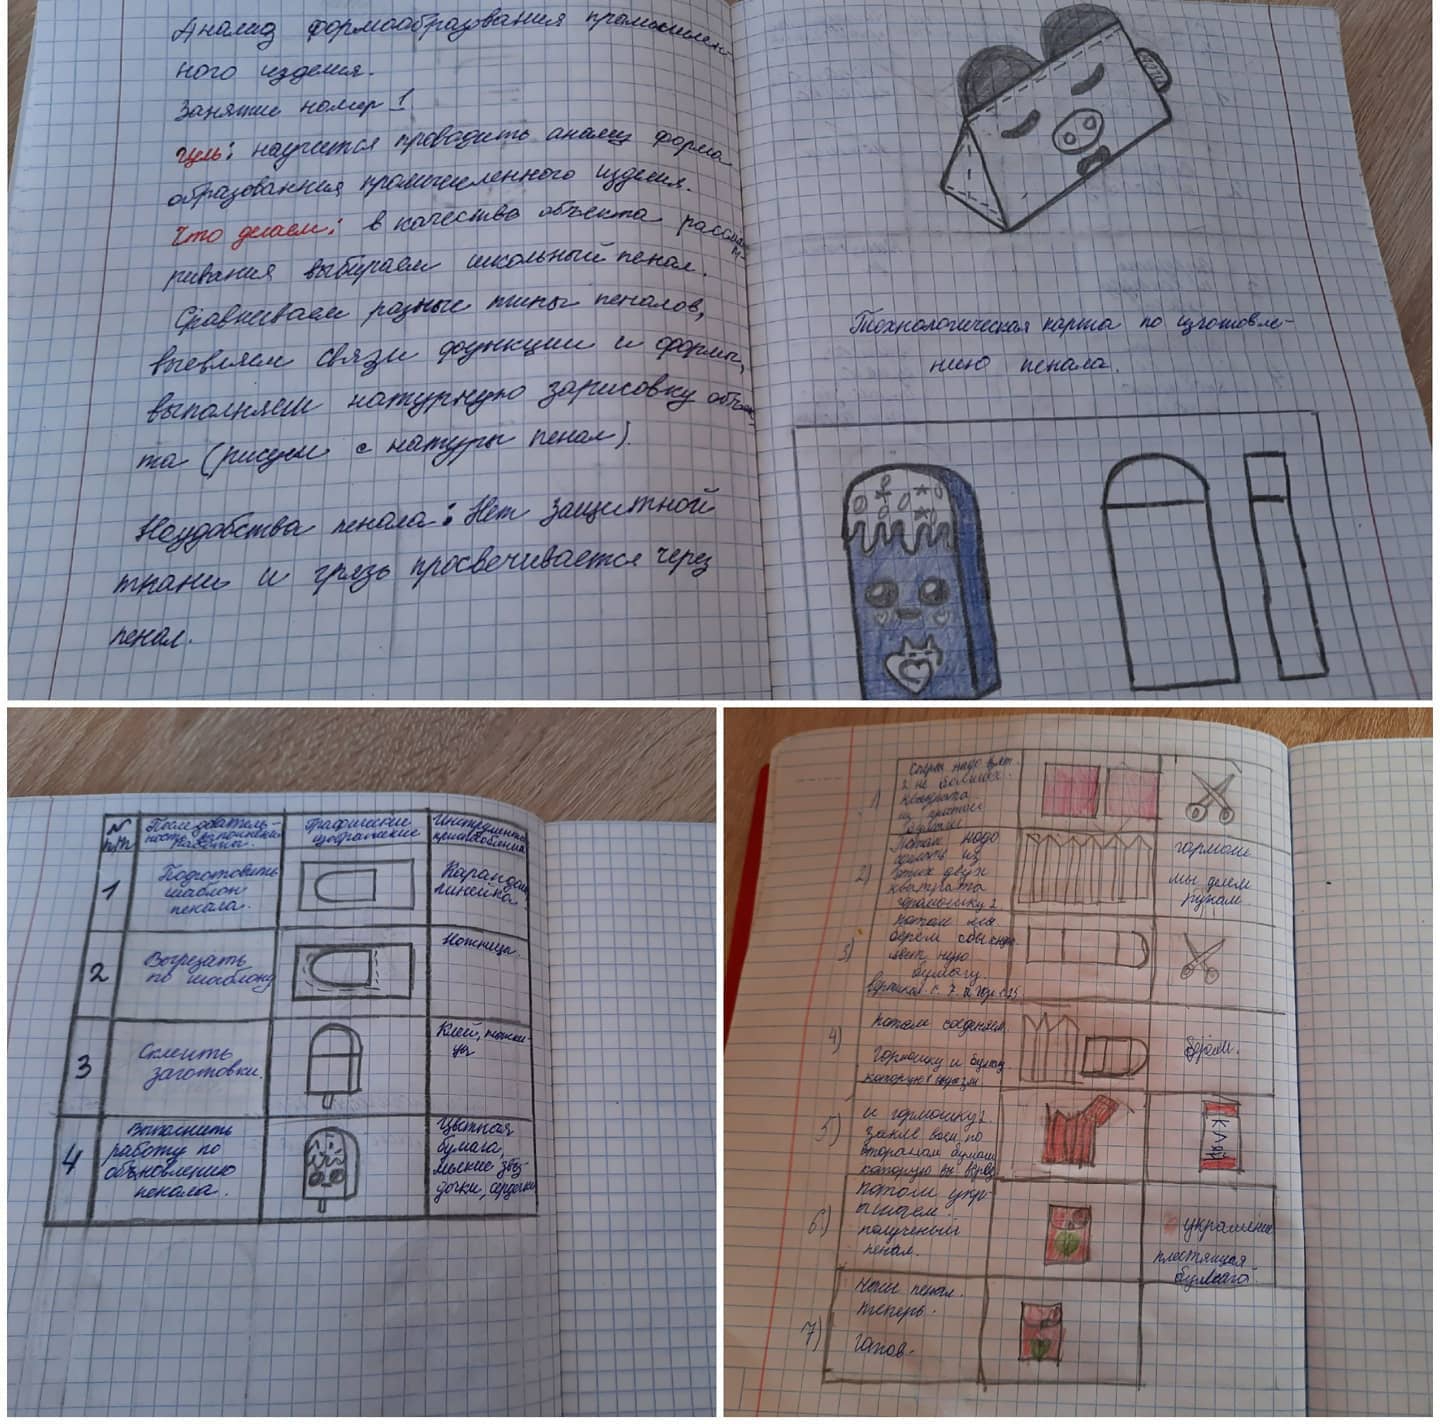 Анализ формообразования промышлен-
ного изделия.
Занятие номер 1
Цель: научится проводить анализ форма
образования промышленного изделия.
Что делаем: в качества объекта рассмат-
ривания выбираем школьный пенал.
Сравниваем разные типы пеналов,
выевляем связи функции и формы,
выполняем натурную зарисовку объек
та (рисуем с натуры пенал).
Неудобства пенала: Нет защитной
ткани и грязь просвечивается через
пенал.
Технологическая карта по изготовле-
нию пенала.
N п/п
Последователь-
ность выполнения
работы.
Графические
изображение
Инструменты
приспособления
1
Подготовить
шаблон
пенала.
Карандаш
линейка
2
Вырезать
по шаблону
Ножницы.
3
Склеить
заготовки.
Клей, ножни-
цы
4
Выполнить
работу по
обновлению
пенала.
Цветная
бумага,
звёз
дочки, сердечки
1)
надо взят.
2 не больших
квадрата
2)
Потом надо
сделать из
этих двух
квадрата
гармошку 2
гармош.
мы делем
руками.
3)
потом мы
берём
бумагу.
4)
потом соеденяем.
гармошку и бумаг
которую
берем.
5)
и гармошку 2
по
бумаги
которую вы
КЛЕЙ
6)
потом укр-
полученый
пенал.
украшение
блестящая
бумага
7)
пенал.
теперь.
готов.